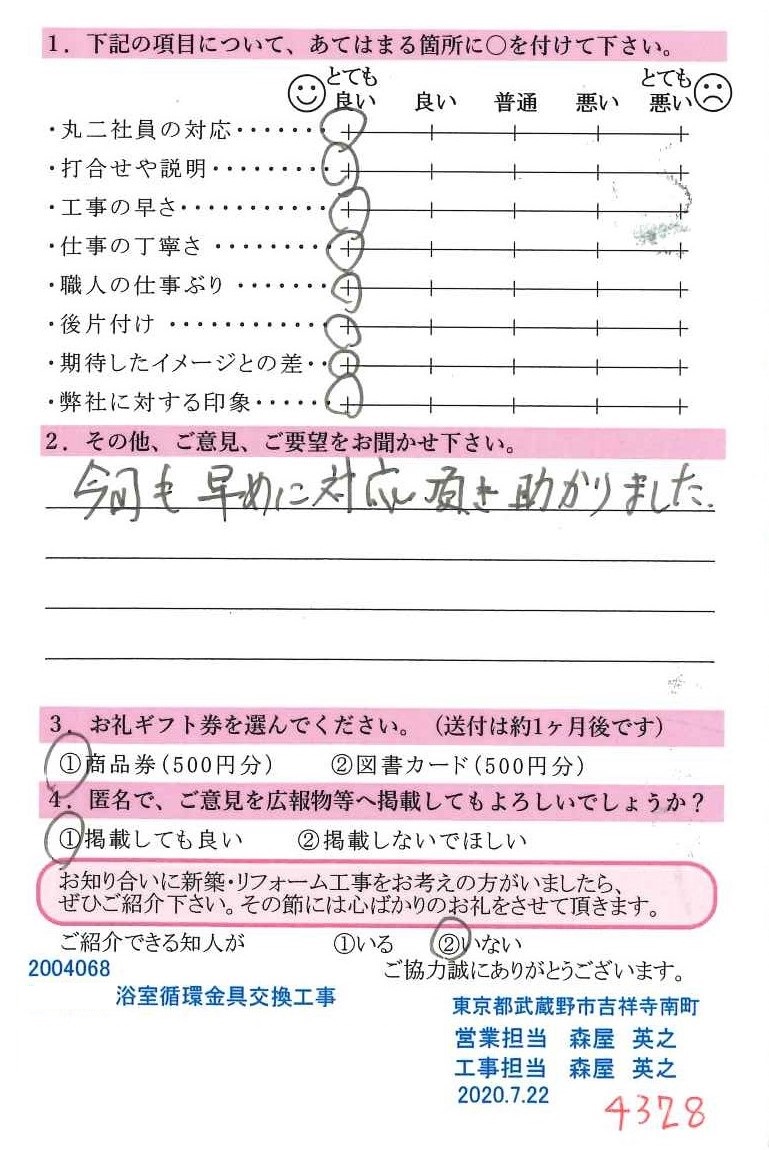 1. 下記の項目について、あてはまる箇所に○を付けて下さい。
とても良い 良い 普通 悪い とても悪い
・丸二社員の対応・・・・・・・
・打合せや説明・・・・・・・・・
・工事の早さ・・・・・・・・・・・
・仕事の丁寧さ・・・・・・・・・
・職人の仕事ぶり・・・・・・・
・後片付け・・・・・・・・・・・・
・期待したイメージとの差・・
・弊社に対する印象・・・・・・
2. その他、ご意見、ご要望をお聞かせ下さい。
今回も早めに対応頂き助かりました.
3. お礼ギフト券を選んでください。(送付は約1ヶ月後です)
①商品券(500円分) ②図書カード(500円分)
4. 匿名で、ご意見を広報物等へ掲載してもよろしいでしょうか?
①掲載しても良い ②掲載しないでほしい
お知り合いに新築・リフォーム工事をお考えの方がいましたら、
ぜひご紹介下さい。その節には心ばかりのお礼をさせて頂きます。
ご紹介できる知人が ①いる ②いない
ご協力誠にありがとうございます。
2004068
浴室循環金具交換工事
東京都武蔵野市吉祥寺南町
営業担当 森屋 英之
工事担当 森屋 英之
2020.7.22
4328